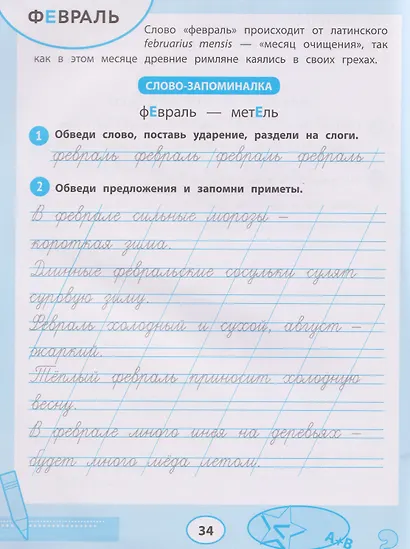 ФЕВРАЛЬ
Слово «февраль» происходит от латинского
februarius mensis — «месяц очищения», так
как в этом месяце древние римляне каялись в своих грехах.
СЛОВО-ЗАПОМИНАЛКА
фЕвраль — метЕль
1 Обведи слово, поставь ударение, раздели на слоги.
февраль февраль февраль февраль
2 Обведи предложения и запомни приметы.
В феврале сильные морозы –
короткая зима.
Длинные февральские сосульки сулят
суровую зиму.
Февраль холодный и сухой, август –
жаркий.
Тёплый февраль приносит холодную
весну.
В феврале много инея на деревьях –
будет много мёда летом.
34
А Я В